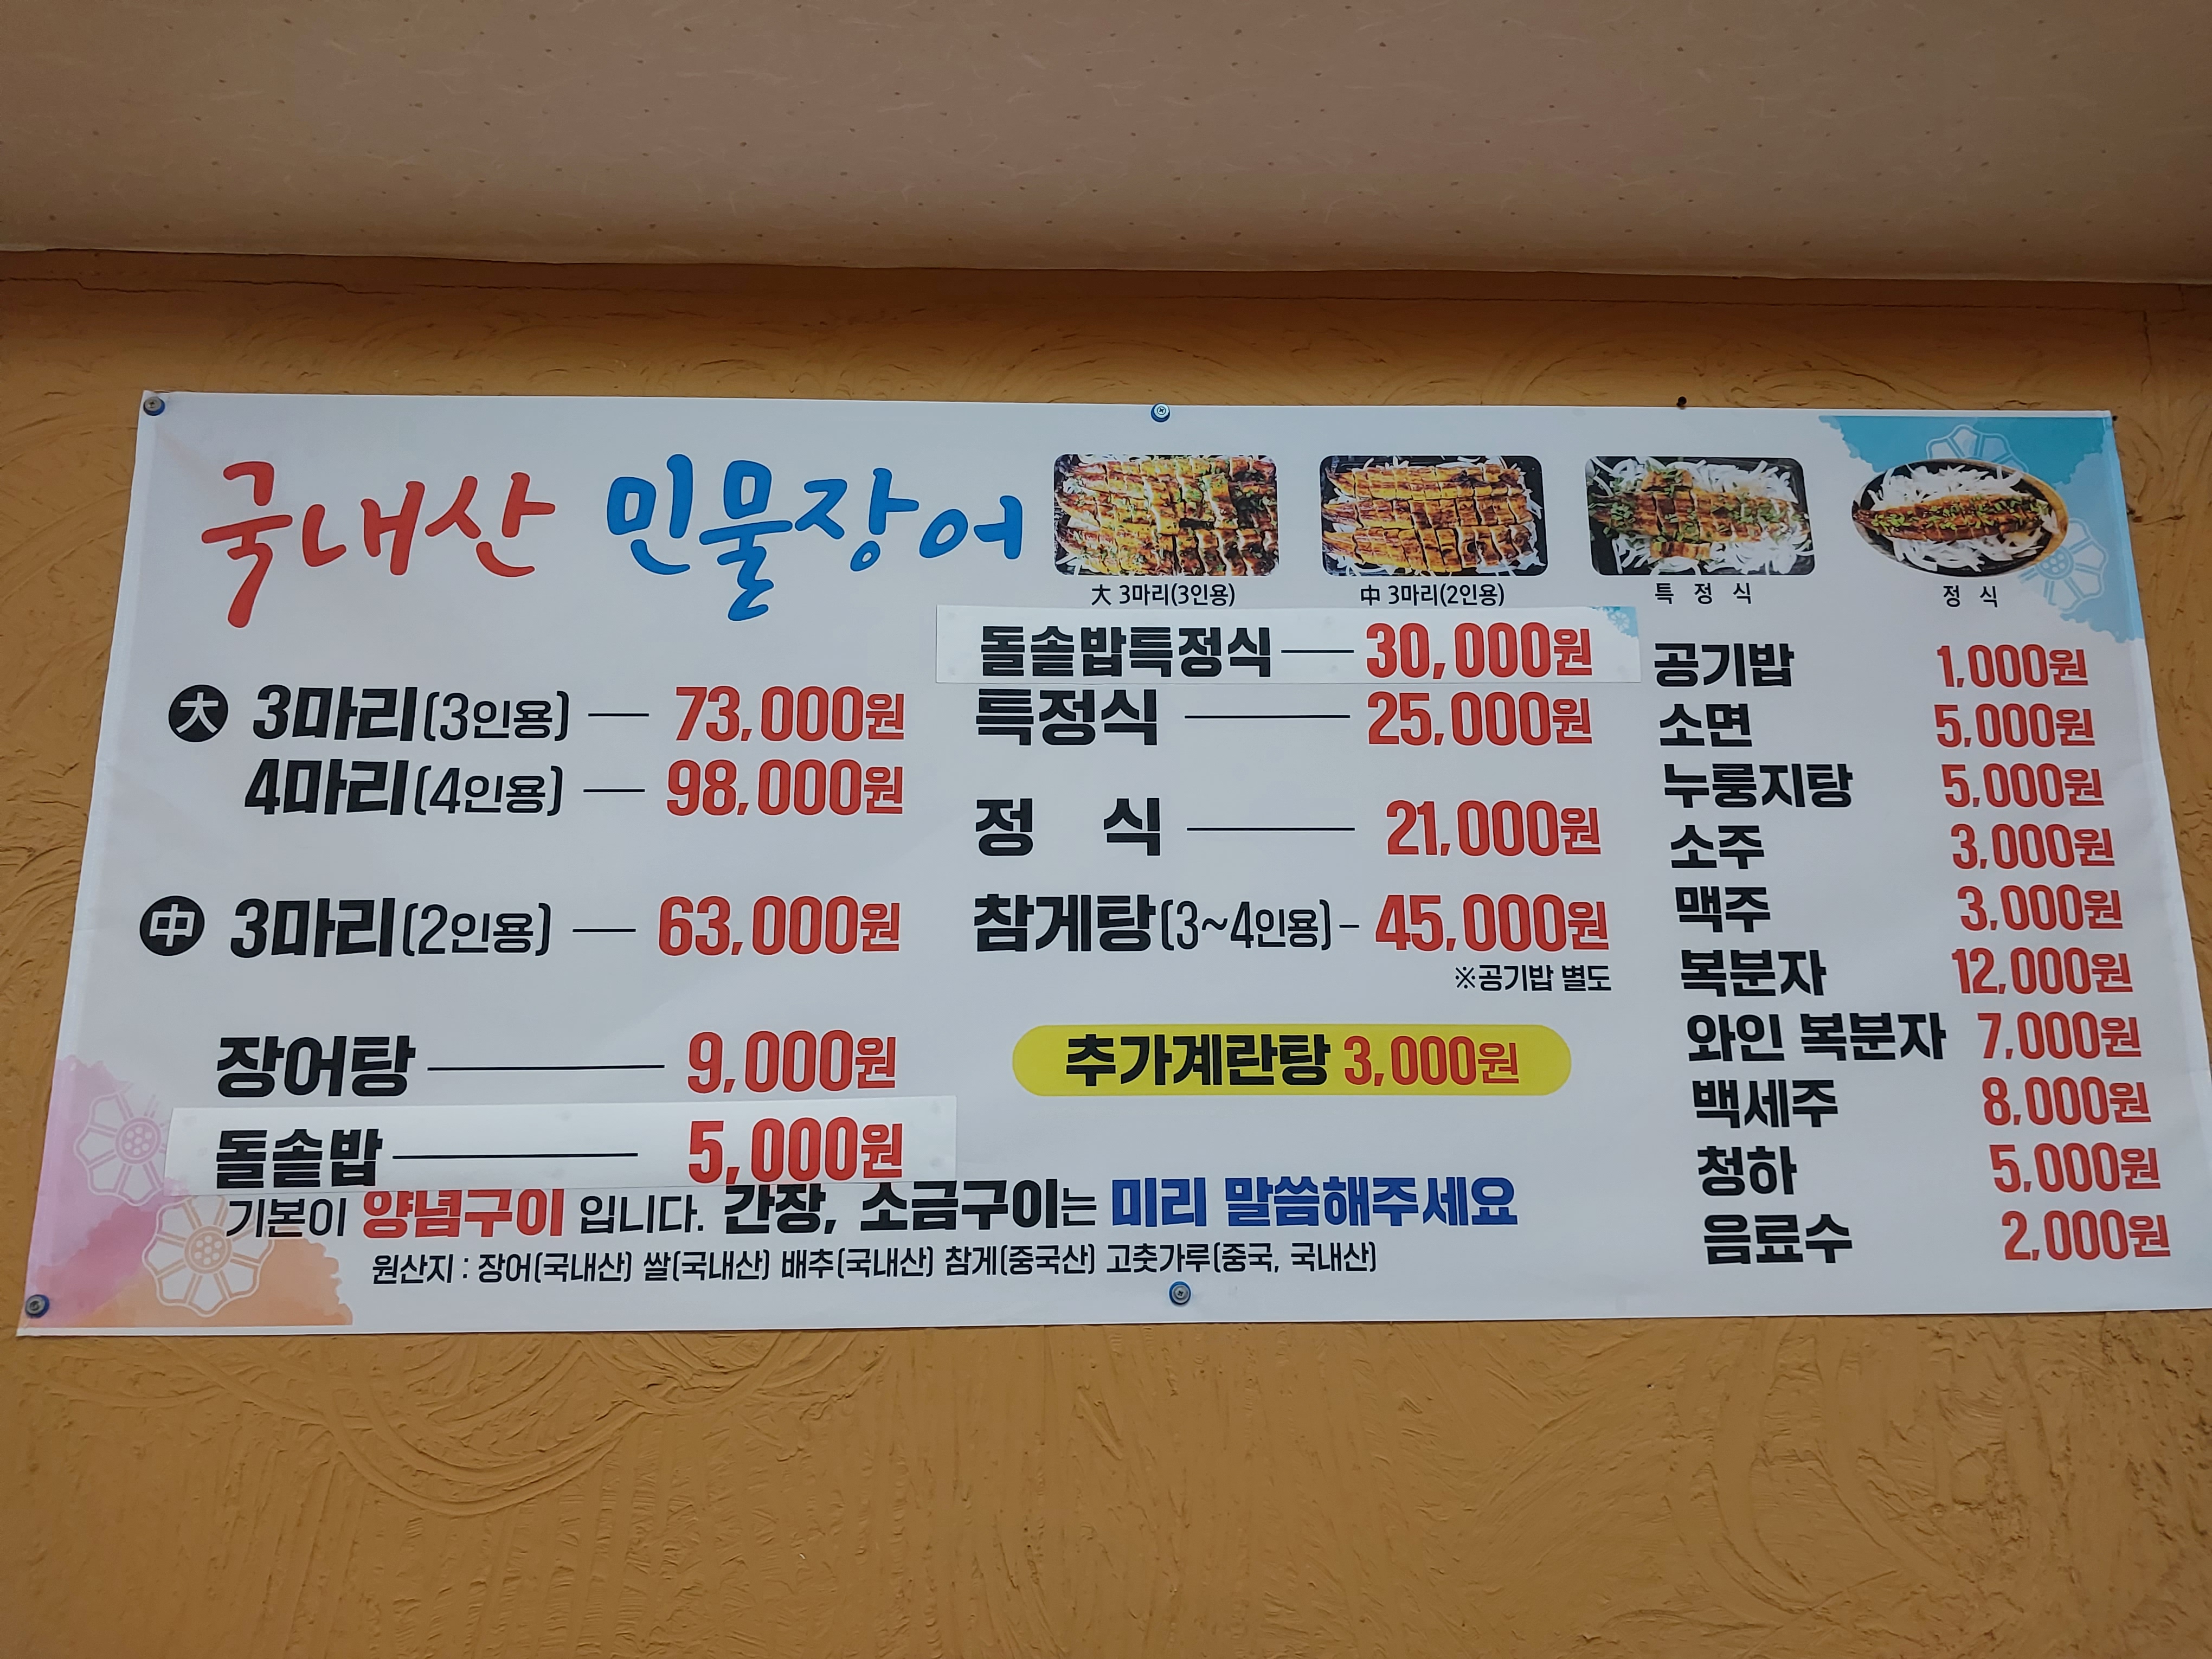 국내산 민물장어
大 3마리(3인용)
中 3마리(2인용)
특 정 식
정 식
大 3마리(3인용) 73,000원
4마리(4인용) 98,000원
中 3마리(2인용) 63,000원
장어탕 9,000원
돌솥밥 5,000원
돌솥밥특정식 30,000원
특정식 25,000원
정 식 21,000원
참게탕(3~4인용) 45,000원
※공기밥 별도
추가계란탕 3,000원
공기밥 1,000원
소면 5,000원
누룽지탕 5,000원
소주 3,000원
맥주 3,000원
복분자 12,000원
와인 복분자 7,000원
백세주 8,000원
청하 5,000원
음료수 2,000원
기본이 양념구이 입니다. 간장, 소금구이는 미리 말씀해주세요
원산지 : 장어(국내산) 쌀(국내산) 배추(국내산) 참게(중국산) 고춧가루(중국, 국내산)